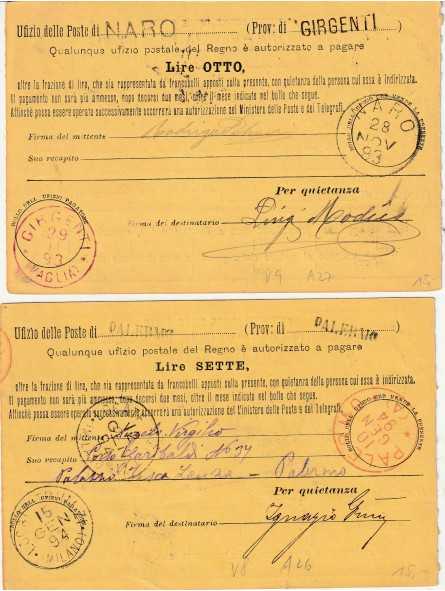 Ufizio delle Poste di NARO (Prov: di GIRGENTI
Qualunque ufizio postale del Regno è autorizzato a pagare
Lire OTTO,
oltre la frazione di lire, che sia rappresentata da francobolli apposti sulla presente, con quietanza della persona cui essa è indirizzata.
Il pagamento non sarà più ammesso, dopo decorsi due mesi, oltre il mese indicato nel bollo che segue.
Affinchè possa essere operato successivamente occorrerà una autorizzazione del Ministero delle Poste e dei Telegrafi.
NARO
28
NOV
93
Firma del mittente
Suo recapito
BOLLO DELL' UFIZIO PAGATORE
GIRGENTI
29
93
(VAGLIA)
Per quietanza
Firma del destinatario
V9 A27
15,
Ufizio delle Poste di PALERMO (Prov: di PALERMO)
Qualunque ufizio postale del Regno è autorizzato a pagare
Lire SETTE,
oltre la frazione di lire, che sia rappresentata da francobolli apposti sulla presente, con quietanza della persona cui essa è indirizzata.
Il pagamento non sarà più ammesso, dopo decorsi due mesi, oltre il mese indicato nel bollo che segue.
Affinchè possa essere operato successivamente occorrerà una autorizzazione del Ministero delle Poste e dei Telegrafi.
Firma del mittente Virgilio
Suo recapito Garibaldi
Palazzo Palermo
BOLLO DELL' UFIZIO PAGATORE
15
GEN
94
(MILANO)
Per quietanza
Firma del destinatario Ignazio
V8 A26
15,-